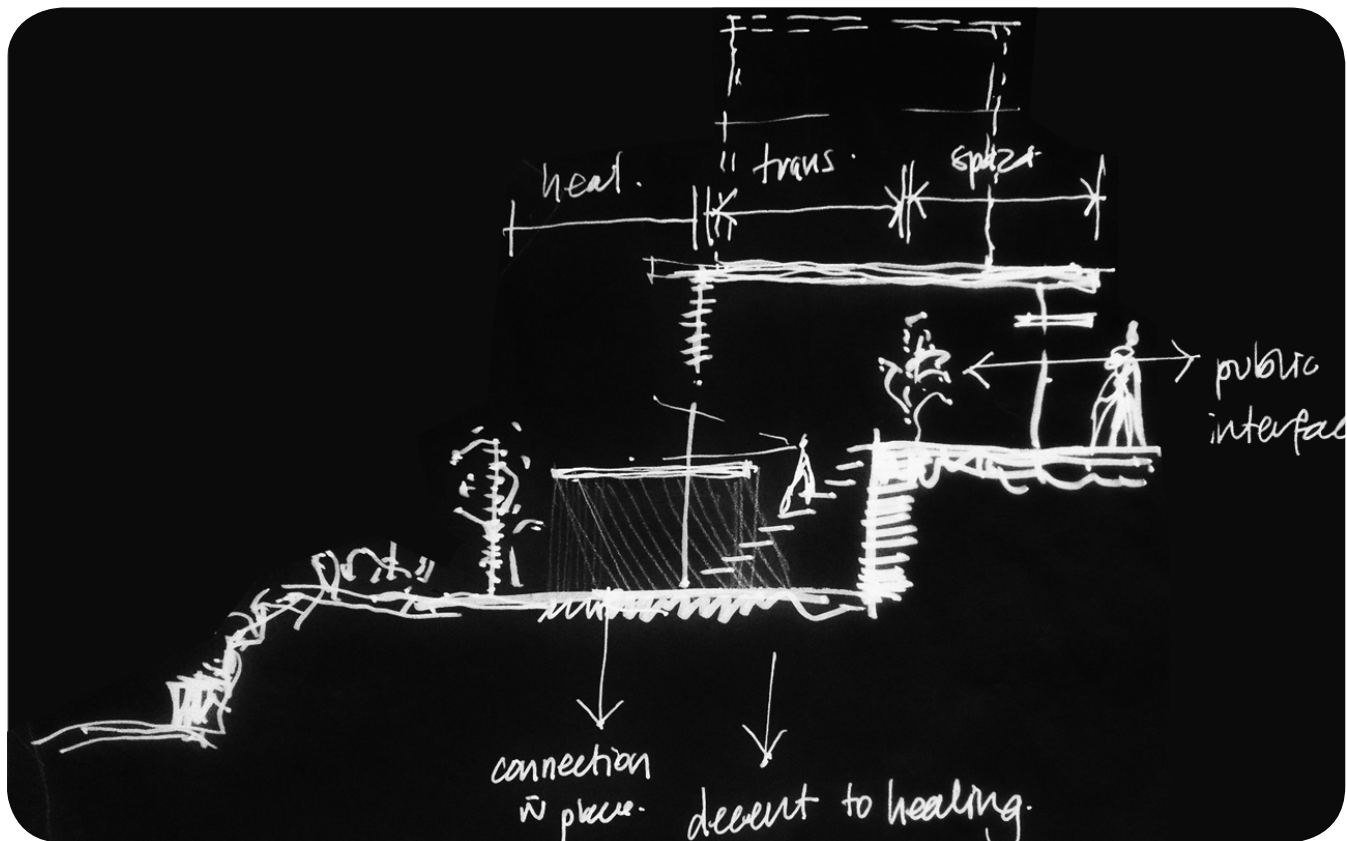 heal.
trans.
public
interfac
connection
in place.
decent to healing.